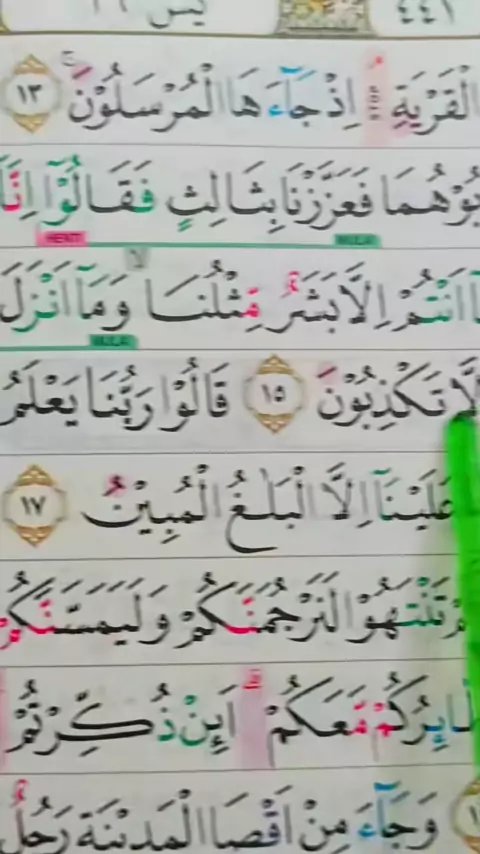 يٰسۤ ٤٤١
الْقَرْيَةِۘ STOP اِذْ جَاۤءَهَا الْمُرْسَلُوْنَۚ ١٣
بُوْهُمَا فَعَزَّزْنَا بِثَالِثٍ فَقَالُوْٓا اِنَّآ
HENTI MULAI
اَنْتُمْ اِلَّا بَشَرٌ مِّثْلُنَاۙ وَمَآ اَنْزَلَ
MULAI
لَّا تَكْذِبُوْنَ ١٥ قَالُوْا رَبُّنَا يَعْلَمُ
عَلَيْنَآ اِلَّا الْبَلٰغُ الْمُبِيْنُ ١٧
تَنْتَهُوْا لَنَرْجُمَنَّكُمْ وَلَيَمَسَّنَّكُمْ
مَّعَكُمْۗ اَىِٕنْ ذُكِّرْتُمْۗ
وَجَاۤءَ مِنْ اَقْصَا الْمَدِيْنَةِ رَجُلٌ